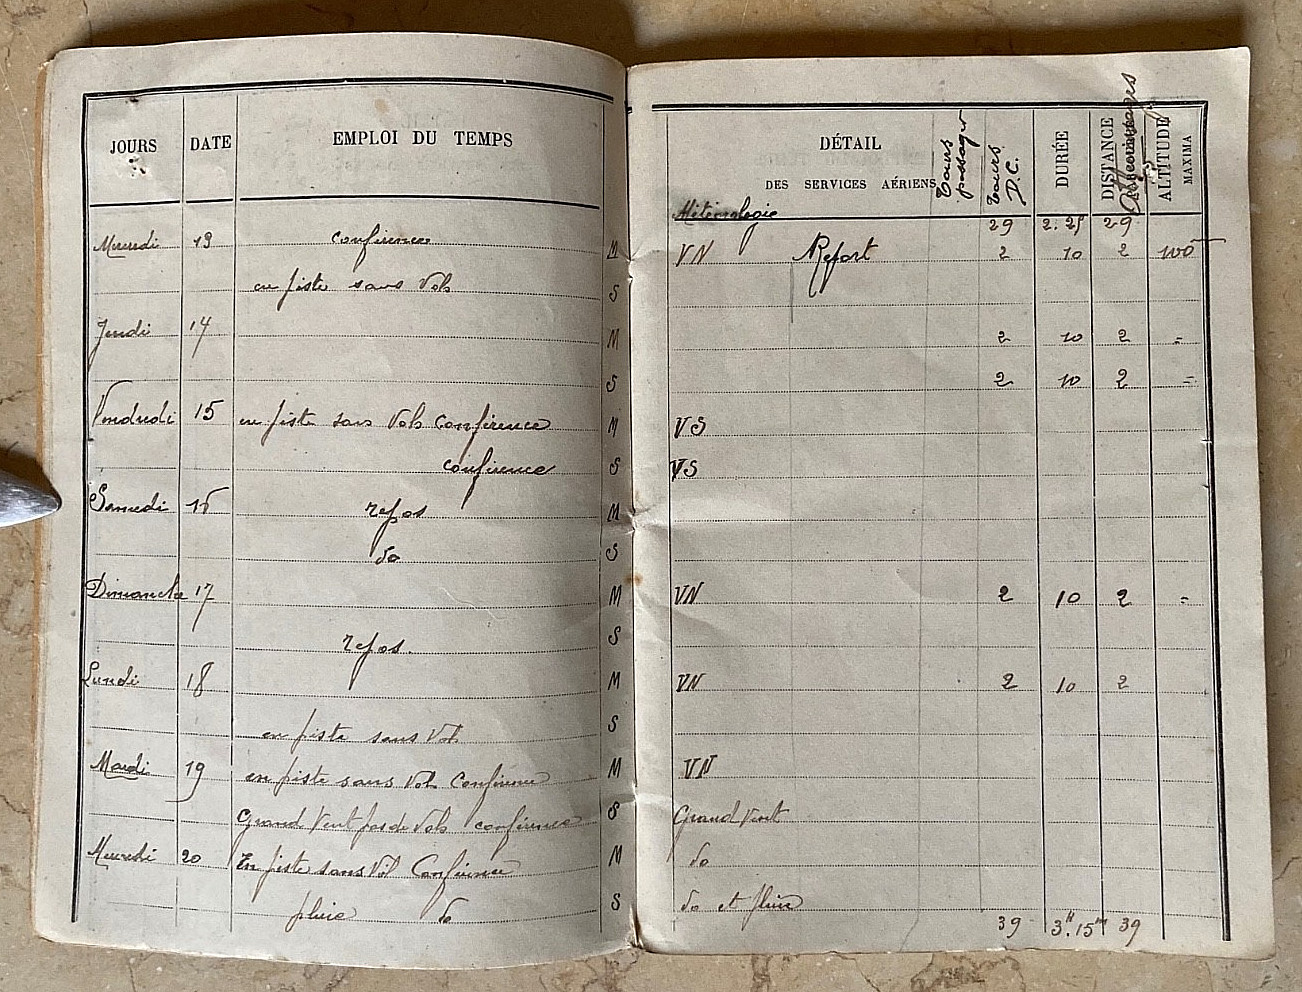 JOURS DATE EMPLOI DU TEMPS
DÉTAIL
DES SERVICES AÉRIENS
Tours passager
Tours D.C.
DURÉE
DISTANCE
ALTITUDE MAXIMA
Météorologie
29 2.25 29
Mercredi 13 conférence M VN Report 2 10 2 100
en piste sans Vols S
Jeudi 14 M 2 10 2 =
S 2 10 2 =
Vendredi 15 en piste sans Vols Conférence M VS
conférence S VS
Samedi 16 repos M
do S
Dimanche 17 M VN 2 10 2 =
repos. S
Lundi 18 M VN 2 10 2
en piste sans Vol S
Mardi 19 en piste sans Vol Conférence M VN
Grand Vent pas de Vols conférence S Grand Vent
Mercredi 20 En piste sans Vol Conférence M do
pluie do S do et pluie
39 3H.15m 39